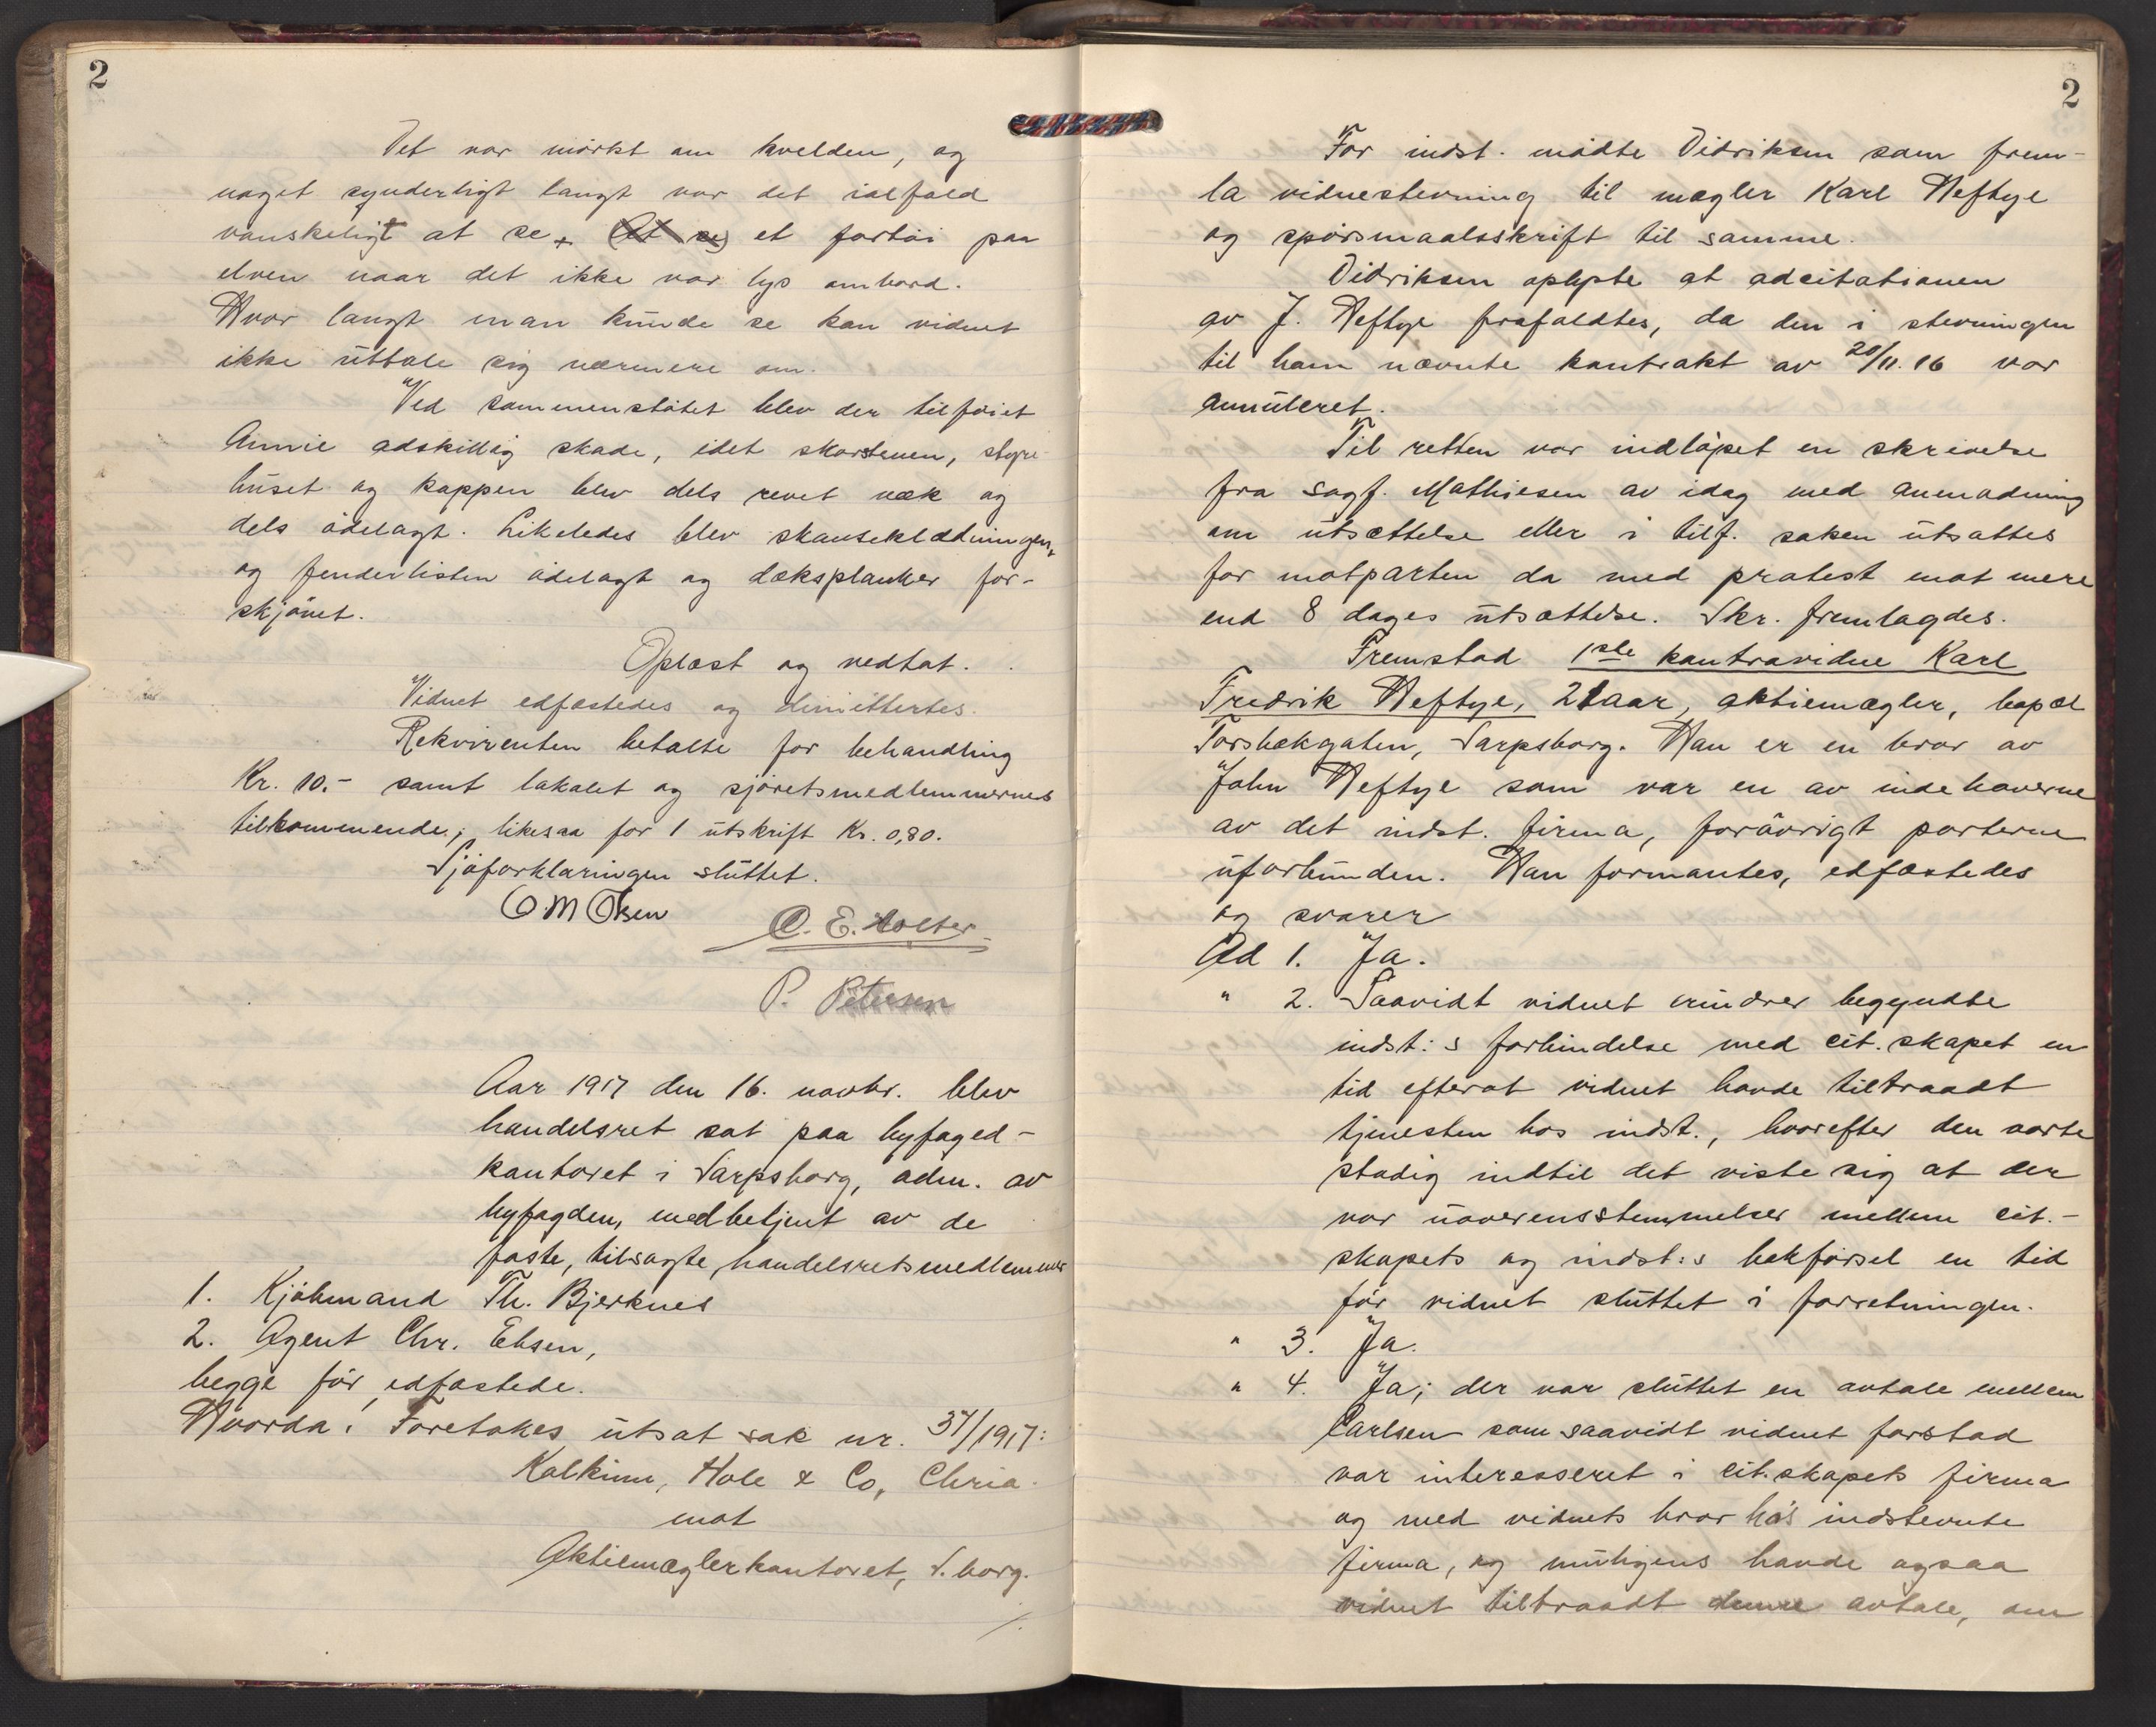 2
Det var mörkt om kvelden, og
noget synderligt langt var det ialfald
vanskeligt at se et fartöi paa
elven naar det ikke var lys ombord.
Hvor langt man kunde se kan vidnet
ikke uttale sig nærmere om.
Ved sammenstötet blev der tilföiet
Annie adskillig skade, idet skorstenen, styre-
huset og kappen blev dels revet væk og
dels ödelagt. Likeledes blev skanseklædningen
og fenderlisten ödelagt og dæksplanker for-
skjövet.
Oplæst og vedtat.
Vidnet edfæstedes og dimittertes.
Rekvirenten betalte for behandling
Kr. 10.- samt lokalet og sjöretsmedlemmernes
tilkommende; likesaa for 1 utskrift Kr. 0,80.
Sjöforklaringen sluttet.
O M Olsen
C. E. Holter
P. Petersen
Aar 1917 den 16. novbr. blev
handelsret sat paa byfoged-
kontoret i Sarpsborg, adm. av
byfogden, medbetjent av de
faste, tilsagte, handelsretsmedlemmer
1. Kjöbmand Th. Bjerknes
2. Agent Chr. Ebsen,
begge för edfæstede.
Hvorda: Foretokes utsat sak nr. 37/1917:
Kalkinn, Hole & Co, Chria.
mot
Aktiemæglerkontoret, S.borg.
2
For indst. mödte Didriksen som frem-
la vidnestevning til mægler Karl Heftye
og spörsmaalsskrift til samme.
Didriksen oplyste at adcitationen
av J. Heftye frafaldtes, da den i stevningen
til ham nævnte kontrakt av 20/11.16 var
annuleret.
Til retten var indlöpet en skrivelse
fra sagf. Mathiesen av idag med anmodning
om utsættelse eller i tilf. saken utsattes
for motparten da med protest mot mere
end 8 dages utsættelse. Skr. fremlagdes.
Fremstod 1ste kontravidne Karl
Fredrik Heftye, 21 aar, aktiemægler, bopæl
Torsbekgaten, Sarpsborg. Han er en bror av
John Heftye som var en av indehaverne
av det indst. firma, forövrigt parterne
uforbunden. Han formantes, edfæstedes
og svarer
Ad 1. Ja.
" 2. Saavidt vidnet erindrer begyndte
indst:s forbindelse med cit.skapet en
tid efterat vidnet havde tiltraadt
tjenesten hos indst., hvorefter den varte
stadig indtil det viste sig at der
var uoverensstemmelser mellem cit.-
skapets og indst:s bokförsel en tid
för vidnet sluttet i forretningen.
" 3. Ja.
" 4. Ja; der var sluttet en avtale mellem
Carlsen som saavidt vidnet forstod
var interesseret i cit.skapets firma
og med vidnets bror hos indstevnte
firma, og muligens havde ogsaa
vidnet tiltraadt denne avtale, om